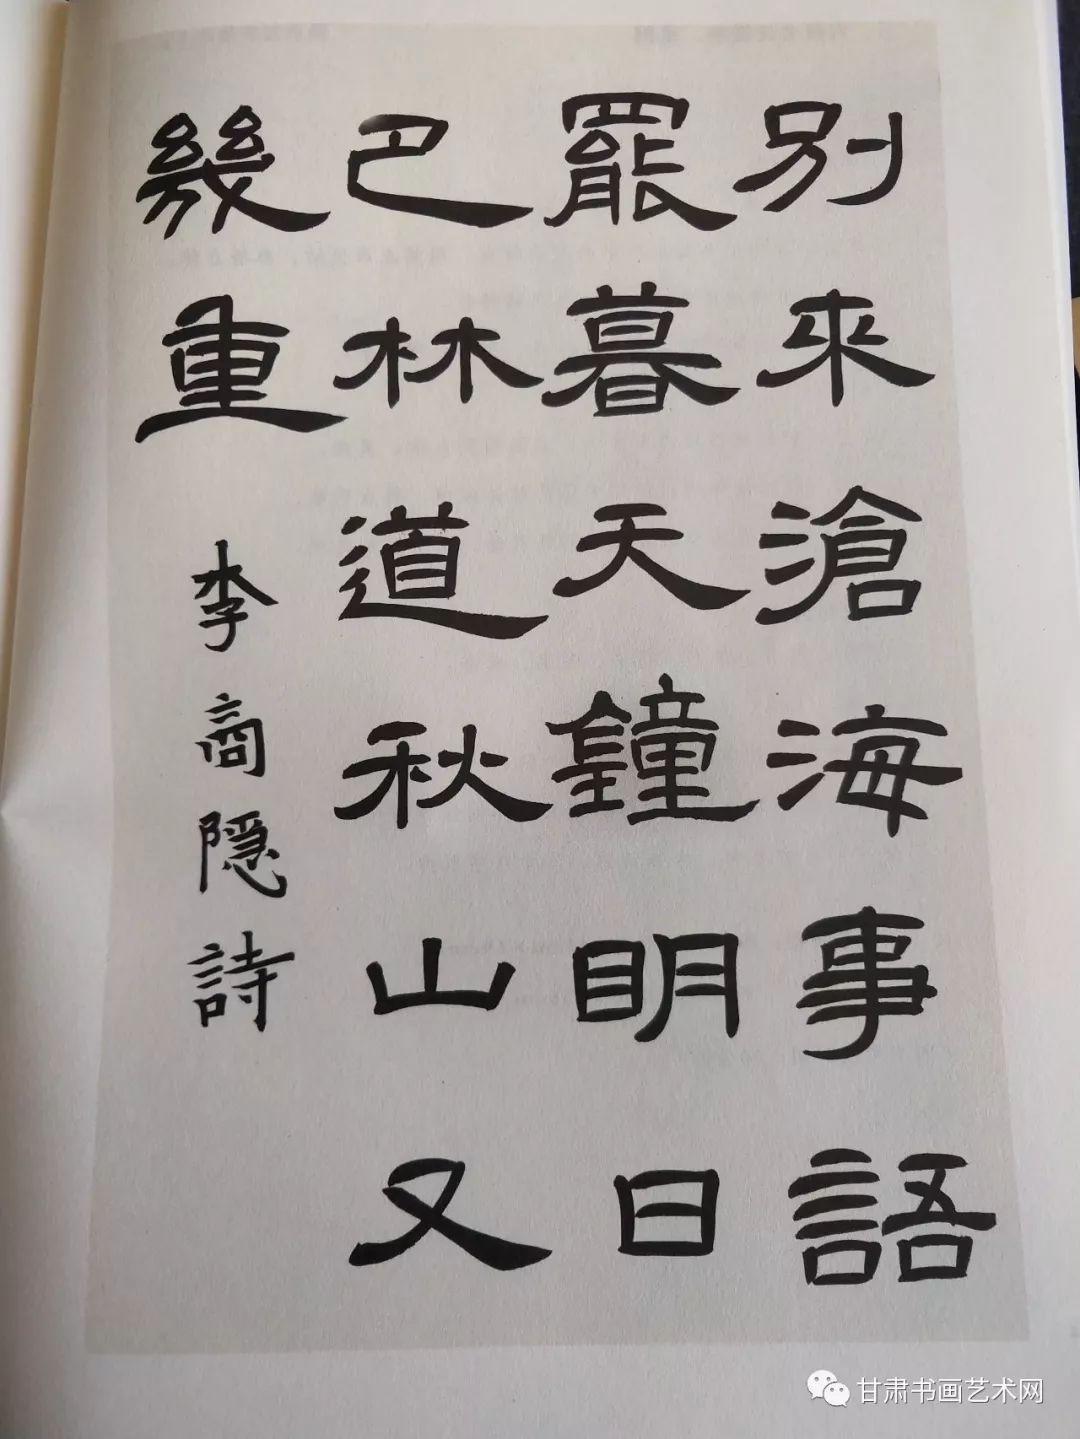 別來滄海事語
罷暮天鐘明日
巴林道秋山又
幾重
李商隱詩
甘肃书画艺术网